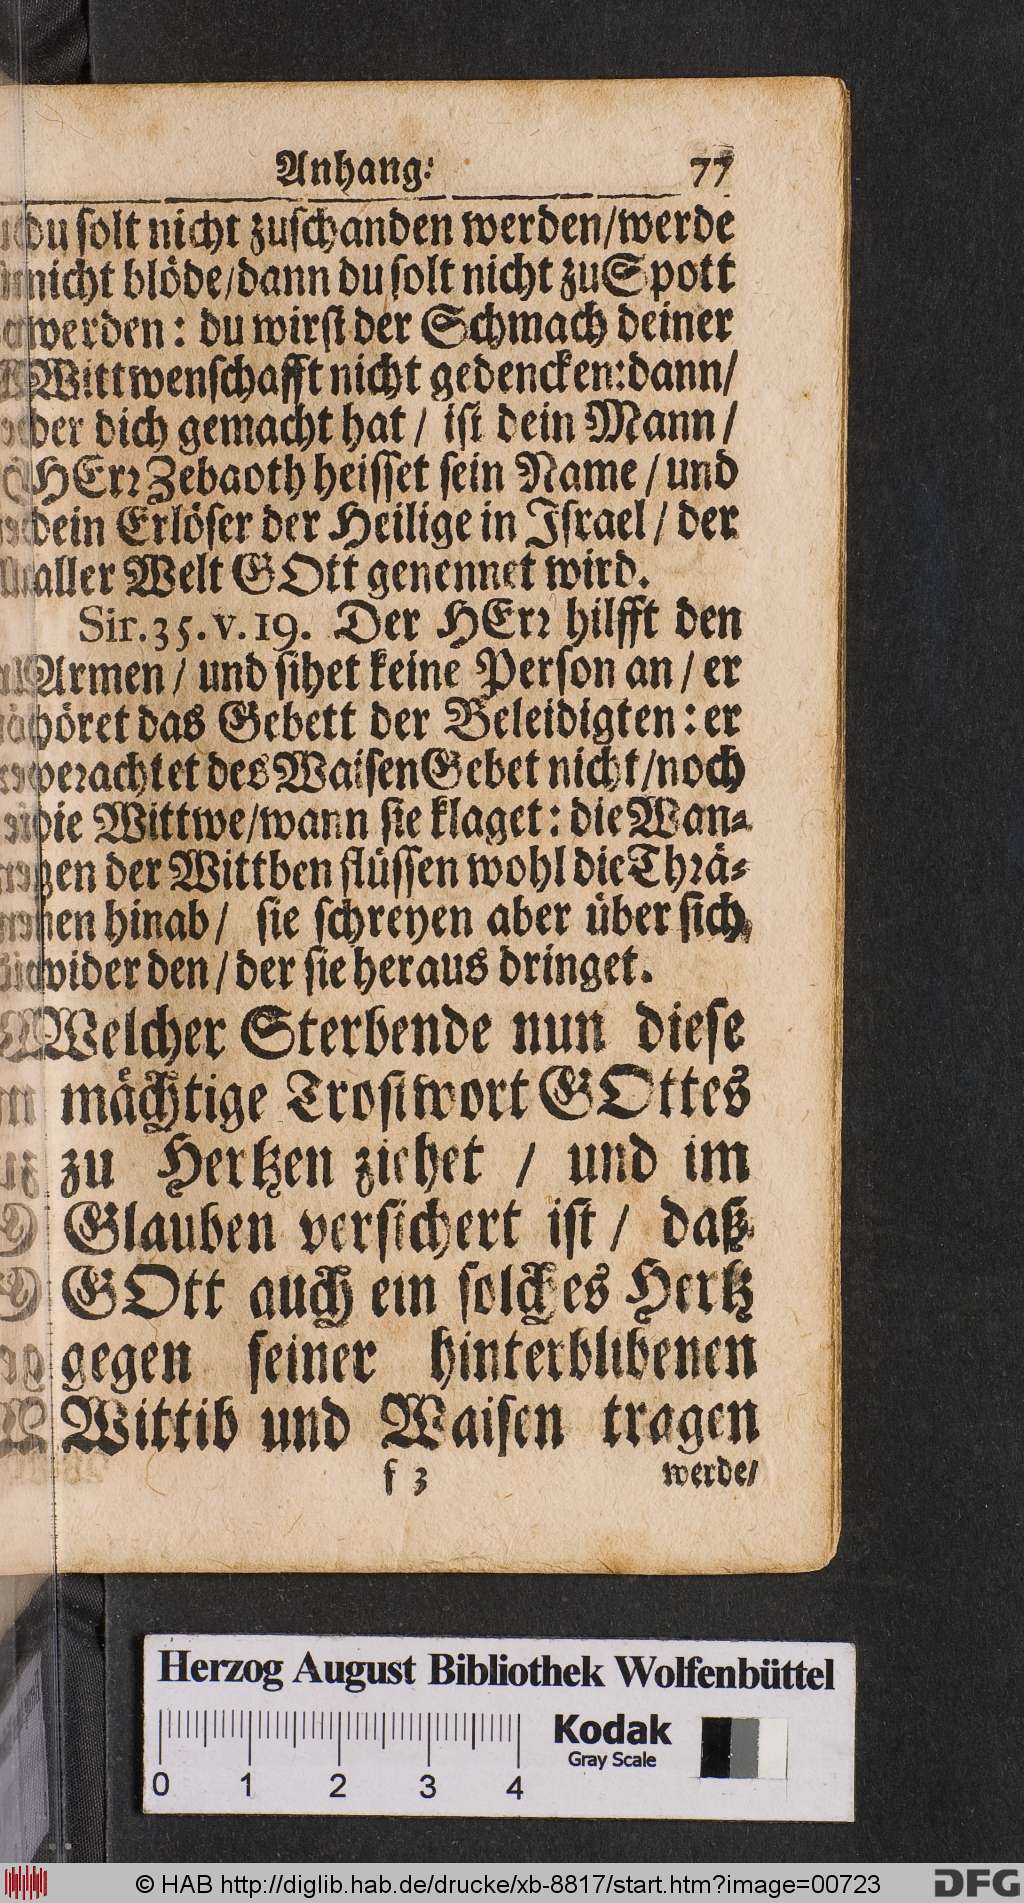 Anhang: 77
du solt nicht zuschanden werden/werde
nicht blöde/dann du solt nicht zu Spott
werden: du wirst der Schmach deiner
Wittwenschafft nicht gedencken:dann/
der dich gemacht hat / ist dein Mann /
HErr Zebaoth heisset sein Name / und
dein Erlöser der Heilige in Israel / der
aller Welt GOtt genennet wird.
Sir. 35. v. 19. Der HErr hilfft den
Armen / und sihet keine Person an / er
höret das Gebett der Beleidigten: er
verachtet des Waisen Gebet nicht/noch
die Wittwe/wann sie klaget: die Wan-
gen der Wittben flüssen wohl die Thrä-
nen hinab / sie schreyen aber über sich
wider den / der sie heraus dringet.
Welcher Sterbende nun diese
mächtige Trostwort GOttes
zu Hertzen ziehet / und im
Glauben versichert ist / daß
GOtt auch ein solches Hertz
gegen seiner hinterblibenen
Wittib und Waisen tragen
f 3 werde/
Herzog August Bibliothek Wolfenbüttel
Kodak
Gray Scale
0 1 2 3 4
© HAB http://diglib.hab.de/drucke/xb-8817/start.htm?image=00723
DFG